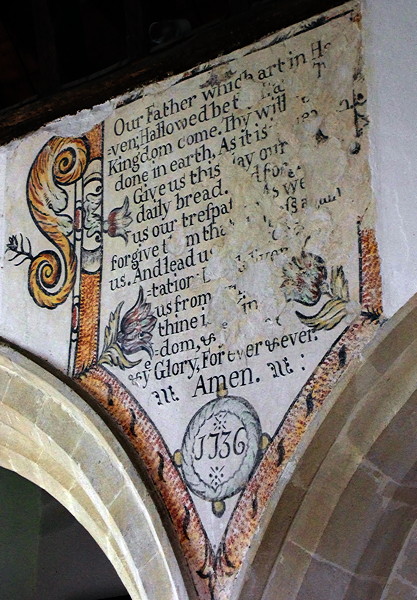 Our Father which art in He
-ven, Hallowed be t
Kingdom come. Thy will
done in earth, As it is
Give us this ay our
daily bread. d for
us our trespa s we
forgive t m tha s against
us. And lead us
-tation
us from
thine i
-dom, &
& y Glory, For ever & ever.
Amen.
1736